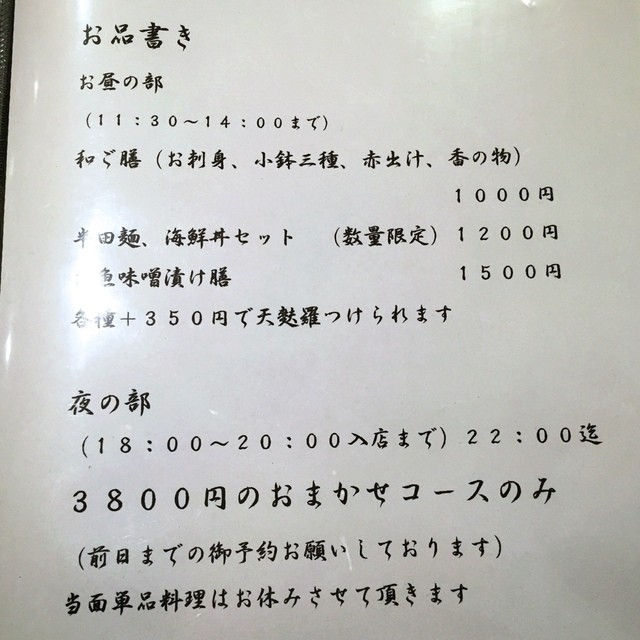 お品書き
お昼の部
（11：30～14：00まで）
和ご膳（お刺身、小鉢三種、赤出汁、香の物）
1000円
半田麺、海鮮丼セット　（数量限定）1200円
魚味噌漬け膳　1500円
各種＋350円で天麩羅つけられます
夜の部
（18：00～20：00入店まで）22：00迄
3800円のおまかせコースのみ
（前日までの御予約お願いしております）
当面単品料理はお休みさせて頂きます